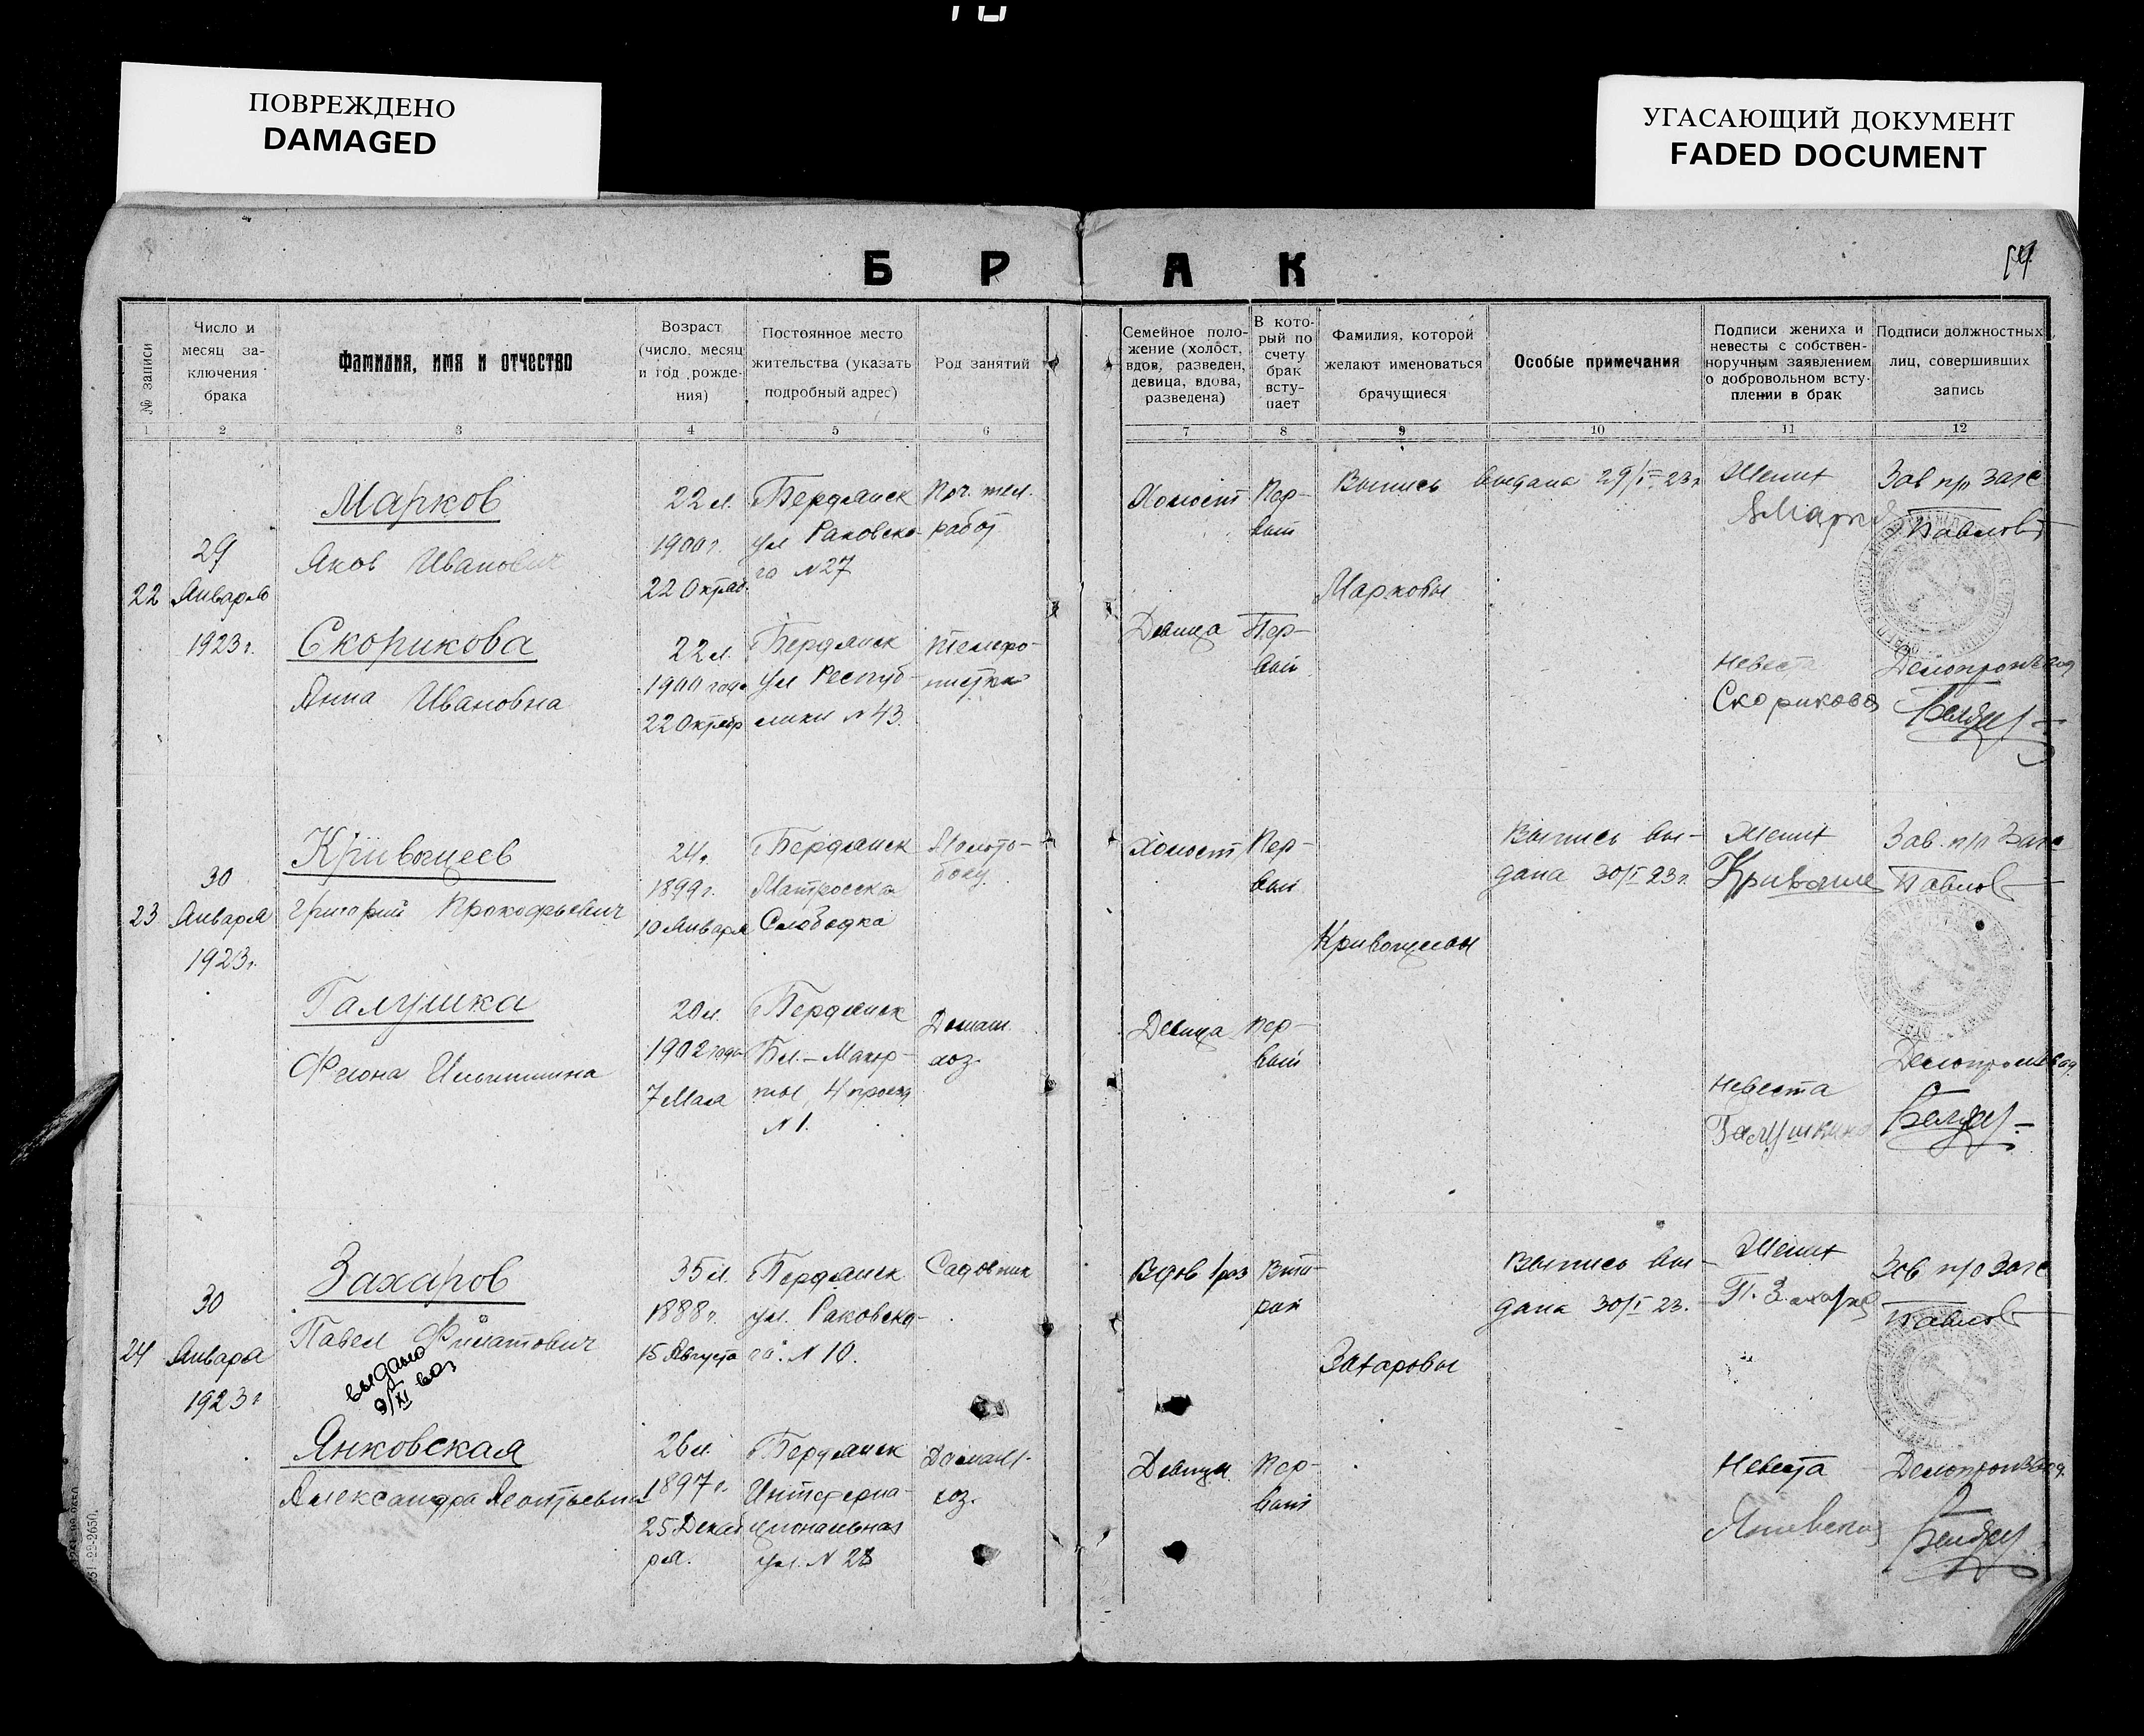 ПОВРЕЖДЕНО
DAMAGED
УГАСАЮЩИЙ ДОКУМЕНТ
FADED DOCUMENT
БРАК
№ записи
Число и
месяц за-
ключения
брака
Фамилия, имя и отчество
Возраст
(число, месяц
и год рожде-
ния)
Постоянное место
жительства (указать
подробный адрес)
Род занятий
Семейное поло-
жение (холост,
вдов, разведен,
девица, вдова,
разведена)
В кото-
рый по
счету
брак
всту-
пает
Фамилия, которой
желают именоваться
брачущиеся
Особые примечания
Подписи жениха и
невесты с собствен-
норучным заявлением
о добровольном всту-
плении в брак
Подписи должностных
лиц, совершивших
запись
1 2 3 4 5 6 7 8 9 10 11 12
22
29
Января
1923 г.
Марков
Яков Иванович
22 л.
1900 г.
22 Октяб.
Бердянск
ул Раковско-
го N 27
Поч. тел.
работ
Холост
Пер-
вый
Выпись выдана 29/I 23 г
Марковы
Жених
ЯМарков
Зав п/о Загс
Павлов
Скорикова
Анна Ивановна
22 л.
1900 года
22 Октябр
Бердянск
ул Респуб-
лики N 43.
Телефо-
нистка
Девица
Пер-
вый
Невеста
Скорикова
Делопроизвод
23
30
Января
1923 г.
Кривошеев
Григорий Прокофьевич
24 г.
1899 г.
10 Января
Бердянск
Матросска
Слободка
Молото-
боец
Холост
Пер-
вый
Кривошеевы
Выпись вы-
дана 30/I 23 г.
Жених
Кривошее
Зав. п/о Загс
Павлов
Галушка
Феона Ильинишна
20 л.
1902 года
7 Мая
Бердянск
Бл.- Макор-
ты, 4 проезд
N 1.
Домаш.
хоз.
Девица
Пер-
вый
Невеста
Галушкина
Делопроизвод.
24
30
Января
1923 г
Захаров
Павел Филатович
выдано
9/XI
35 л.
1888 г.
15 Августа
Бердянск
ул. Раковско-
го. N 10.
Садовник
Вдов 1 раз
Вто-
рой
Захаровы
Выпись вы-
дана 30/I 23.
Жених
П. Захаров
Зав п/о Загс
Павлов
Янковская
Александра Леонтьевна
26 л.
1897 г.
25 Декаб
ря.
Бердянск
Интерна-
циональная
ул. N 28
Домашн.
хоз.
Девица
Пер-
вый
Невеста
Янковская
Делопроизвод.